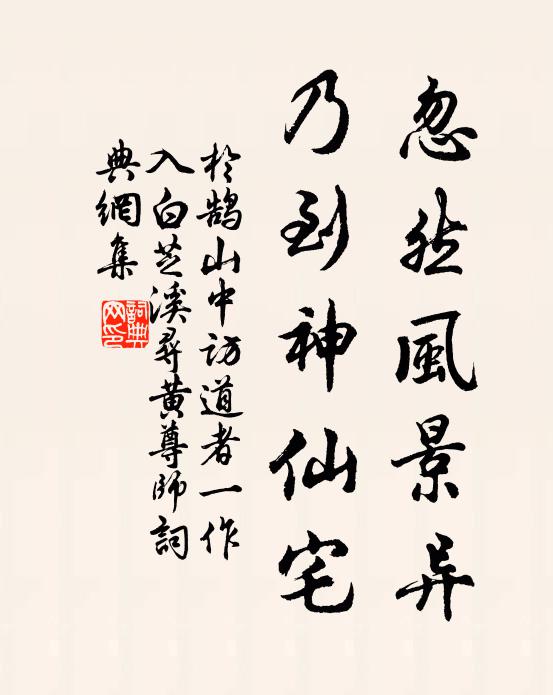 忽然風景异
乃到神仙宅
於鵠山中訪道者一作
入白芝溪尋黄尊師詞
典網集
詞典
网印